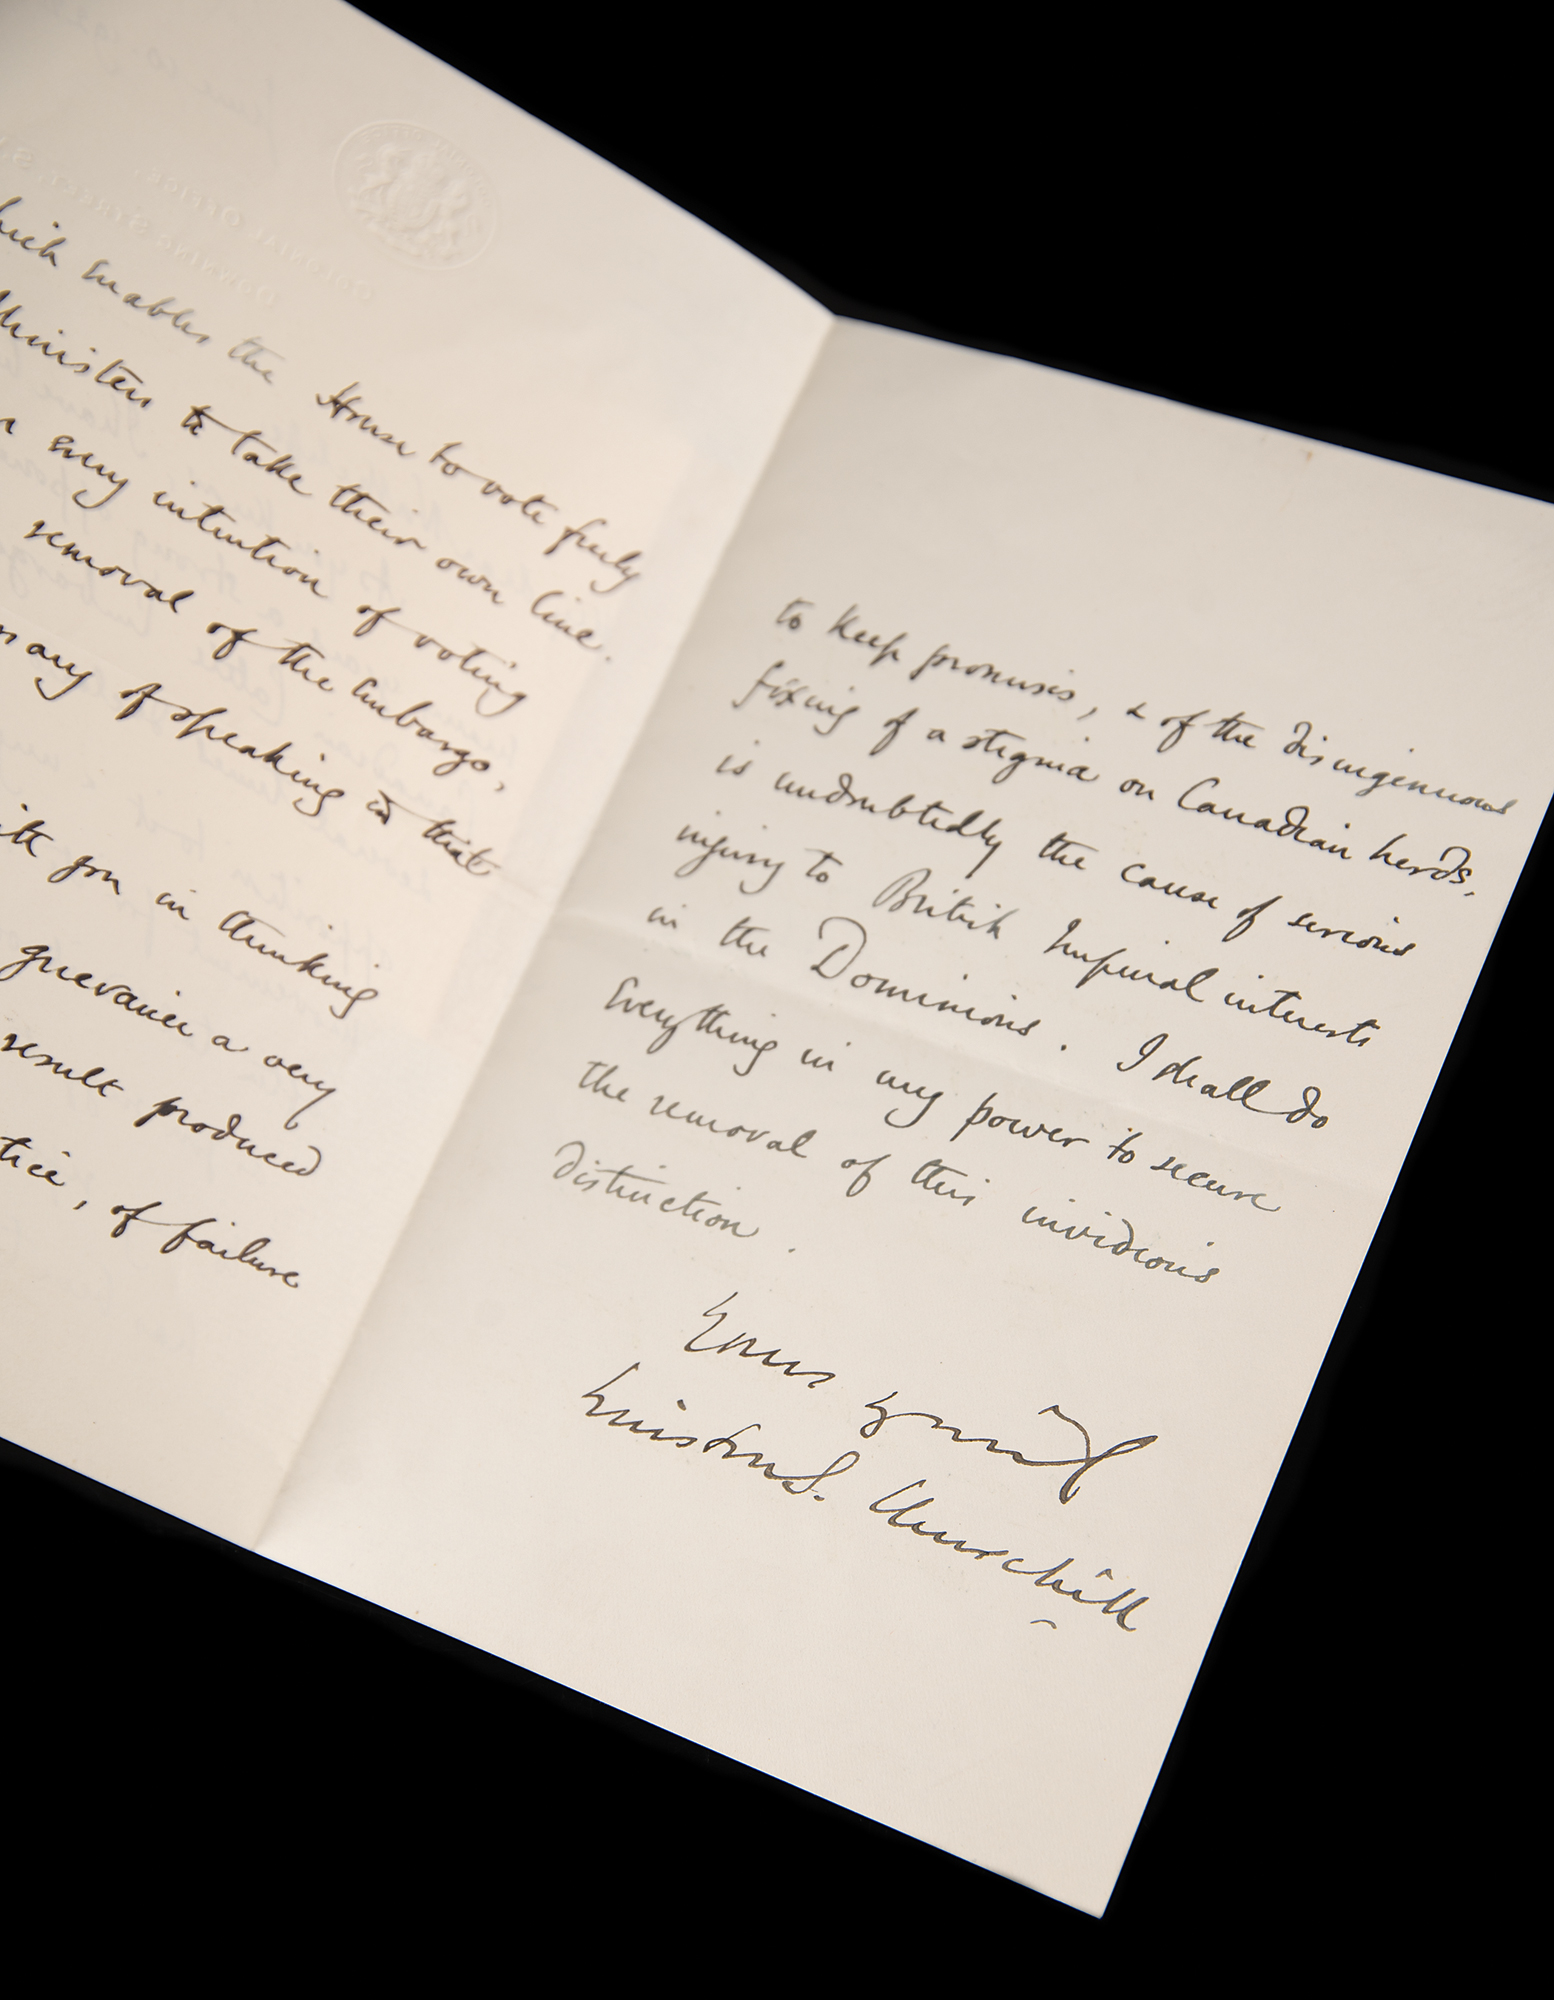 COLONIAL OFFICE,
DOWNING STREET, S.W.
which enables the House to vote freely
Ministers to take their own line.
every intention of voting
removal of the Embargo,
many of speaking in that
with you in thinking
grievance a very
result produced
of failure
to keep promises, & of the disingenuous
fixing of a stigma on Canadian herds,
is undoubtedly the cause of serious
injury to British Imperial interests
in the Dominions. I shall do
Everything in my power to secure
the removal of this invidious
distinction.
Yours
Winston S. Churchill